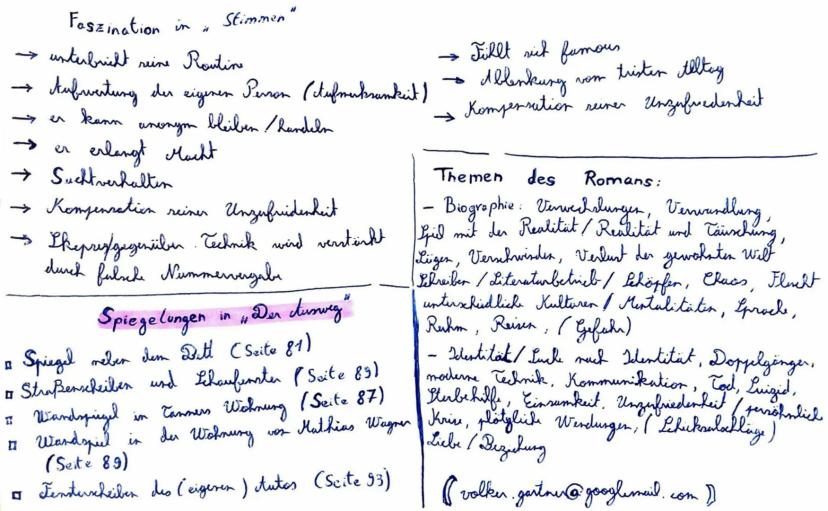 Faszination in „Stimmen"
→ unterbricht seine Routine
→ Aufwertung der eigenen Person (Aufmerksamkeit)
→ er kann anonym bleiben / handeln
→ er erlangt Macht
→ Suchtverhalten
→ Kompensation seiner Unzufriedenheit
→ Skepsis/gegenüber Technik wird verstärkt
durch falsche Nummervergabe
→ Fühlt sich famous
→ Ablenkung vom tristen Alltag
→ Kompensation seiner Unzufriedenheit
Spiegelungen in „Der Ausweg"
Spiegel neben dem Bett (Seite 81)
Straßenscheiben und Schaufenster (Seite 83)
Wandspiegel in Tanners Wohnung (Seite 87)
Wandspiel in der Wohnung von Mathias Wagner
(Seite 89)
Fensterscheiben des (eigenen) Autos (Seite 93)
Themen des Romans:
– Biographie: Verwechslungen, Verwandlung,
Spiel mit der Realität / Realität und Täuschung,
Lügen, Verschwinden, Verlust der gewohnten Welt
Schreiben / Literaturbetrieb / Schöpfen, Chaos, Flucht
unterschiedliche Kulturen / Mentalitäten, Sprache,
Ruhm, Reisen, (Gefahr)
– Identität / Suche nach Identität, Doppelgänger,
moderne Technik, Kommunikation, Tod, Suizid,
Sterbehilfe, Einsamkeit, Unzufriedenheit / persönliche
Krise, plötzliche Wendungen, (Schicksalsschläge)
Liebe / Beziehung
((volker.gartner@googlemail.com))